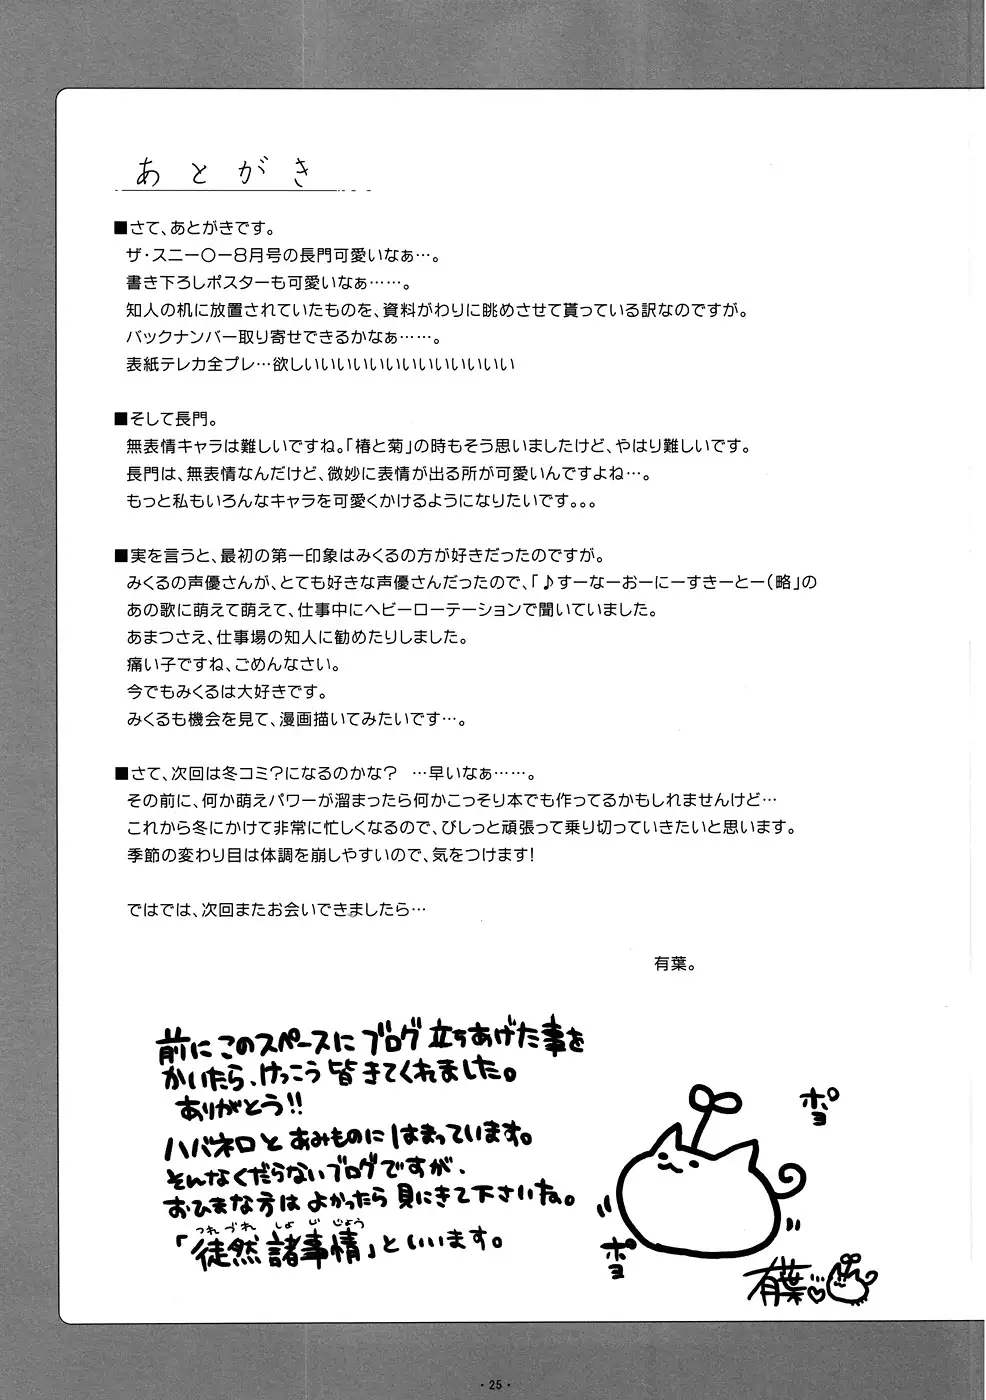 あとがき
■さて、あとがきです。
ザ・スニー〇ー8月号の長門可愛いなぁ…。
書き下ろしポスターも可愛いなぁ……。
知人の机に放置されていたものを、資料がわりに眺めさせて貰っている訳なのですが。
バックナンバー取り寄せできるかなぁ……。
表紙テレカ全プレ…欲しいいいいいいいいいいいいいい
■そして長門。
無表情キャラは難しいですね。「椿と菊」の時もそう思いましたけど、やはり難しいです。
長門は、無表情なんだけど、微妙に表情が出る所が可愛いんですよね…。
もっと私もいろんなキャラを可愛くかけるようになりたいです。。。
■実を言うと、最初の第一印象はみくるの方が好きだったのですが。
みくるの声優さんが、とても好きな声優さんだったので、「♪すーなーおーにーすきーとー（略）」の
あの歌に萌えて萌えて、仕事中にヘビーローテーションで聞いていました。
あまつさえ、仕事場の知人に勧めたりしました。
痛い子ですね、ごめんなさい。
今でもみくるは大好きです。
みくるも機会を見て、漫画描いてみたいです…。
■さて、次回は冬コミ？になるのかな？ …早いなぁ……。
その前に、何か萌えパワーが溜まったら何かこっそり本でも作ってるかもしれませんけど…
これから冬にかけて非常に忙しくなるので、びしっと頑張って乗り切っていきたいと思います。
季節の変わり目は体調を崩しやすいので、気をつけます！
ではでは、次回またお会いできましたら…
有葉。
前にこのスペースにブログ立ちあげた事を
かいたら、けっこう皆きてくれました。
ありがとう!!
ハバネロとあみものにはまっています。
そんなくだらないブログですが、
おひまな方はよかったら見にきて下さいね。
つれづれ しょじじょう
「徒然諸事情」といいます。
ポヨ
ポヨ
有葉
・25・